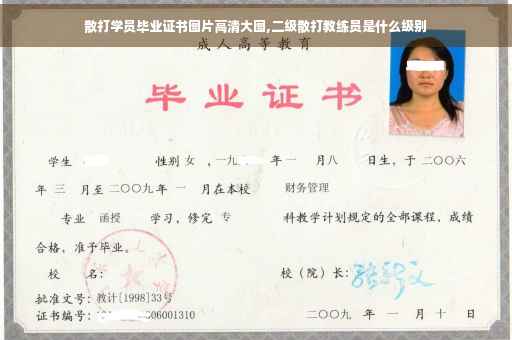 散打学员毕业证书图片高清大图,二级散打教练员是什么级别
成人高等教育
毕业证书
学生 性别 女 ,一九 年一 月八 日生，于二〇〇六
年 三 月至二〇〇九年 一 月在本校 财务管理
专业 函授 学习，修完 专 科教学计划规定的全部课程，成绩
合格，准予毕业。
校 名： 校（院）长：
批准文号：教计[1998]33号
证书编号： 06001310 二〇〇九 年 一 月 十 日